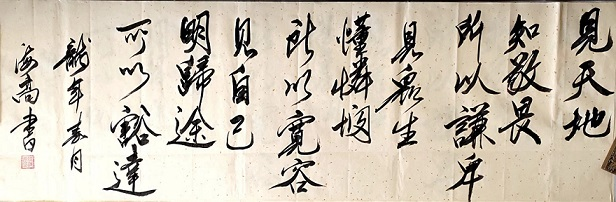 見天地
知敬畏
所以謙卑
見眾生
懂憐憫
所以寬容
見自己
明歸途
所以豁達
龍年春月
海高書